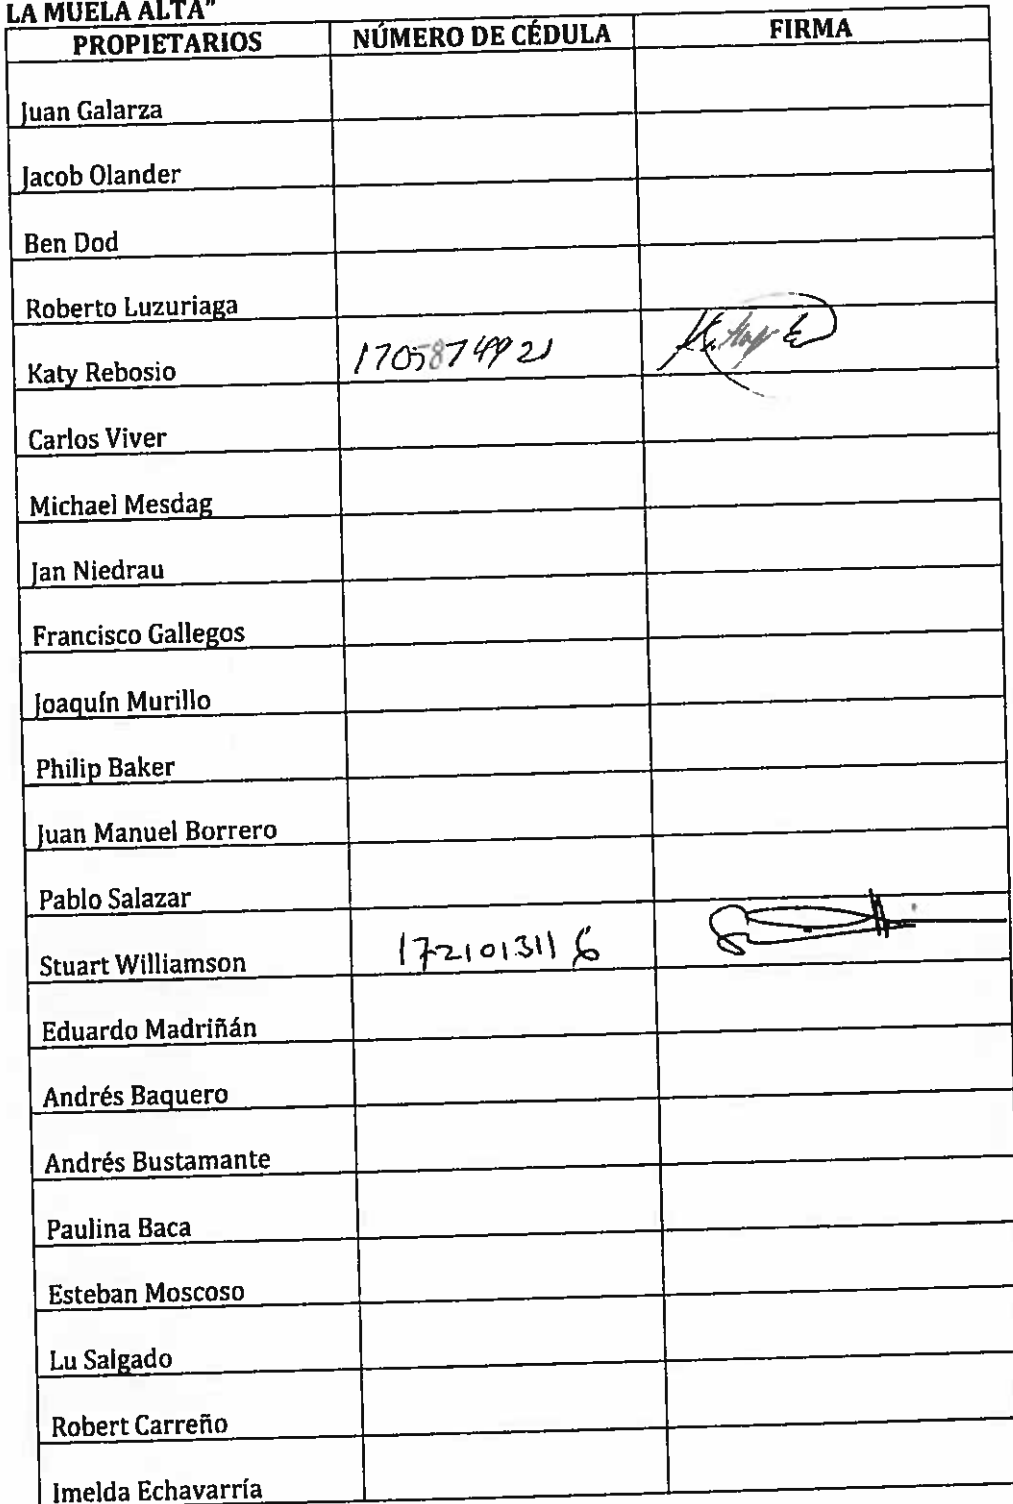 LA MUELA ALTA"
PROPIETARIOS NÚMERO DE CÉDULA FIRMA
Juan Galarza
Jacob Olander
Ben Dod
Roberto Luzuriaga
Katy Rebosio 1705874921
Carlos Viver
Michael Mesdag
Jan Niedrau
Francisco Gallegos
Joaquín Murillo
Philip Baker
Juan Manuel Borrero
Pablo Salazar
Stuart Williamson 1721013116
Eduardo Madriñán
Andrés Baquero
Andrés Bustamante
Paulina Baca
Esteban Moscoso
Lu Salgado
Robert Carreño
Imelda Echavarría